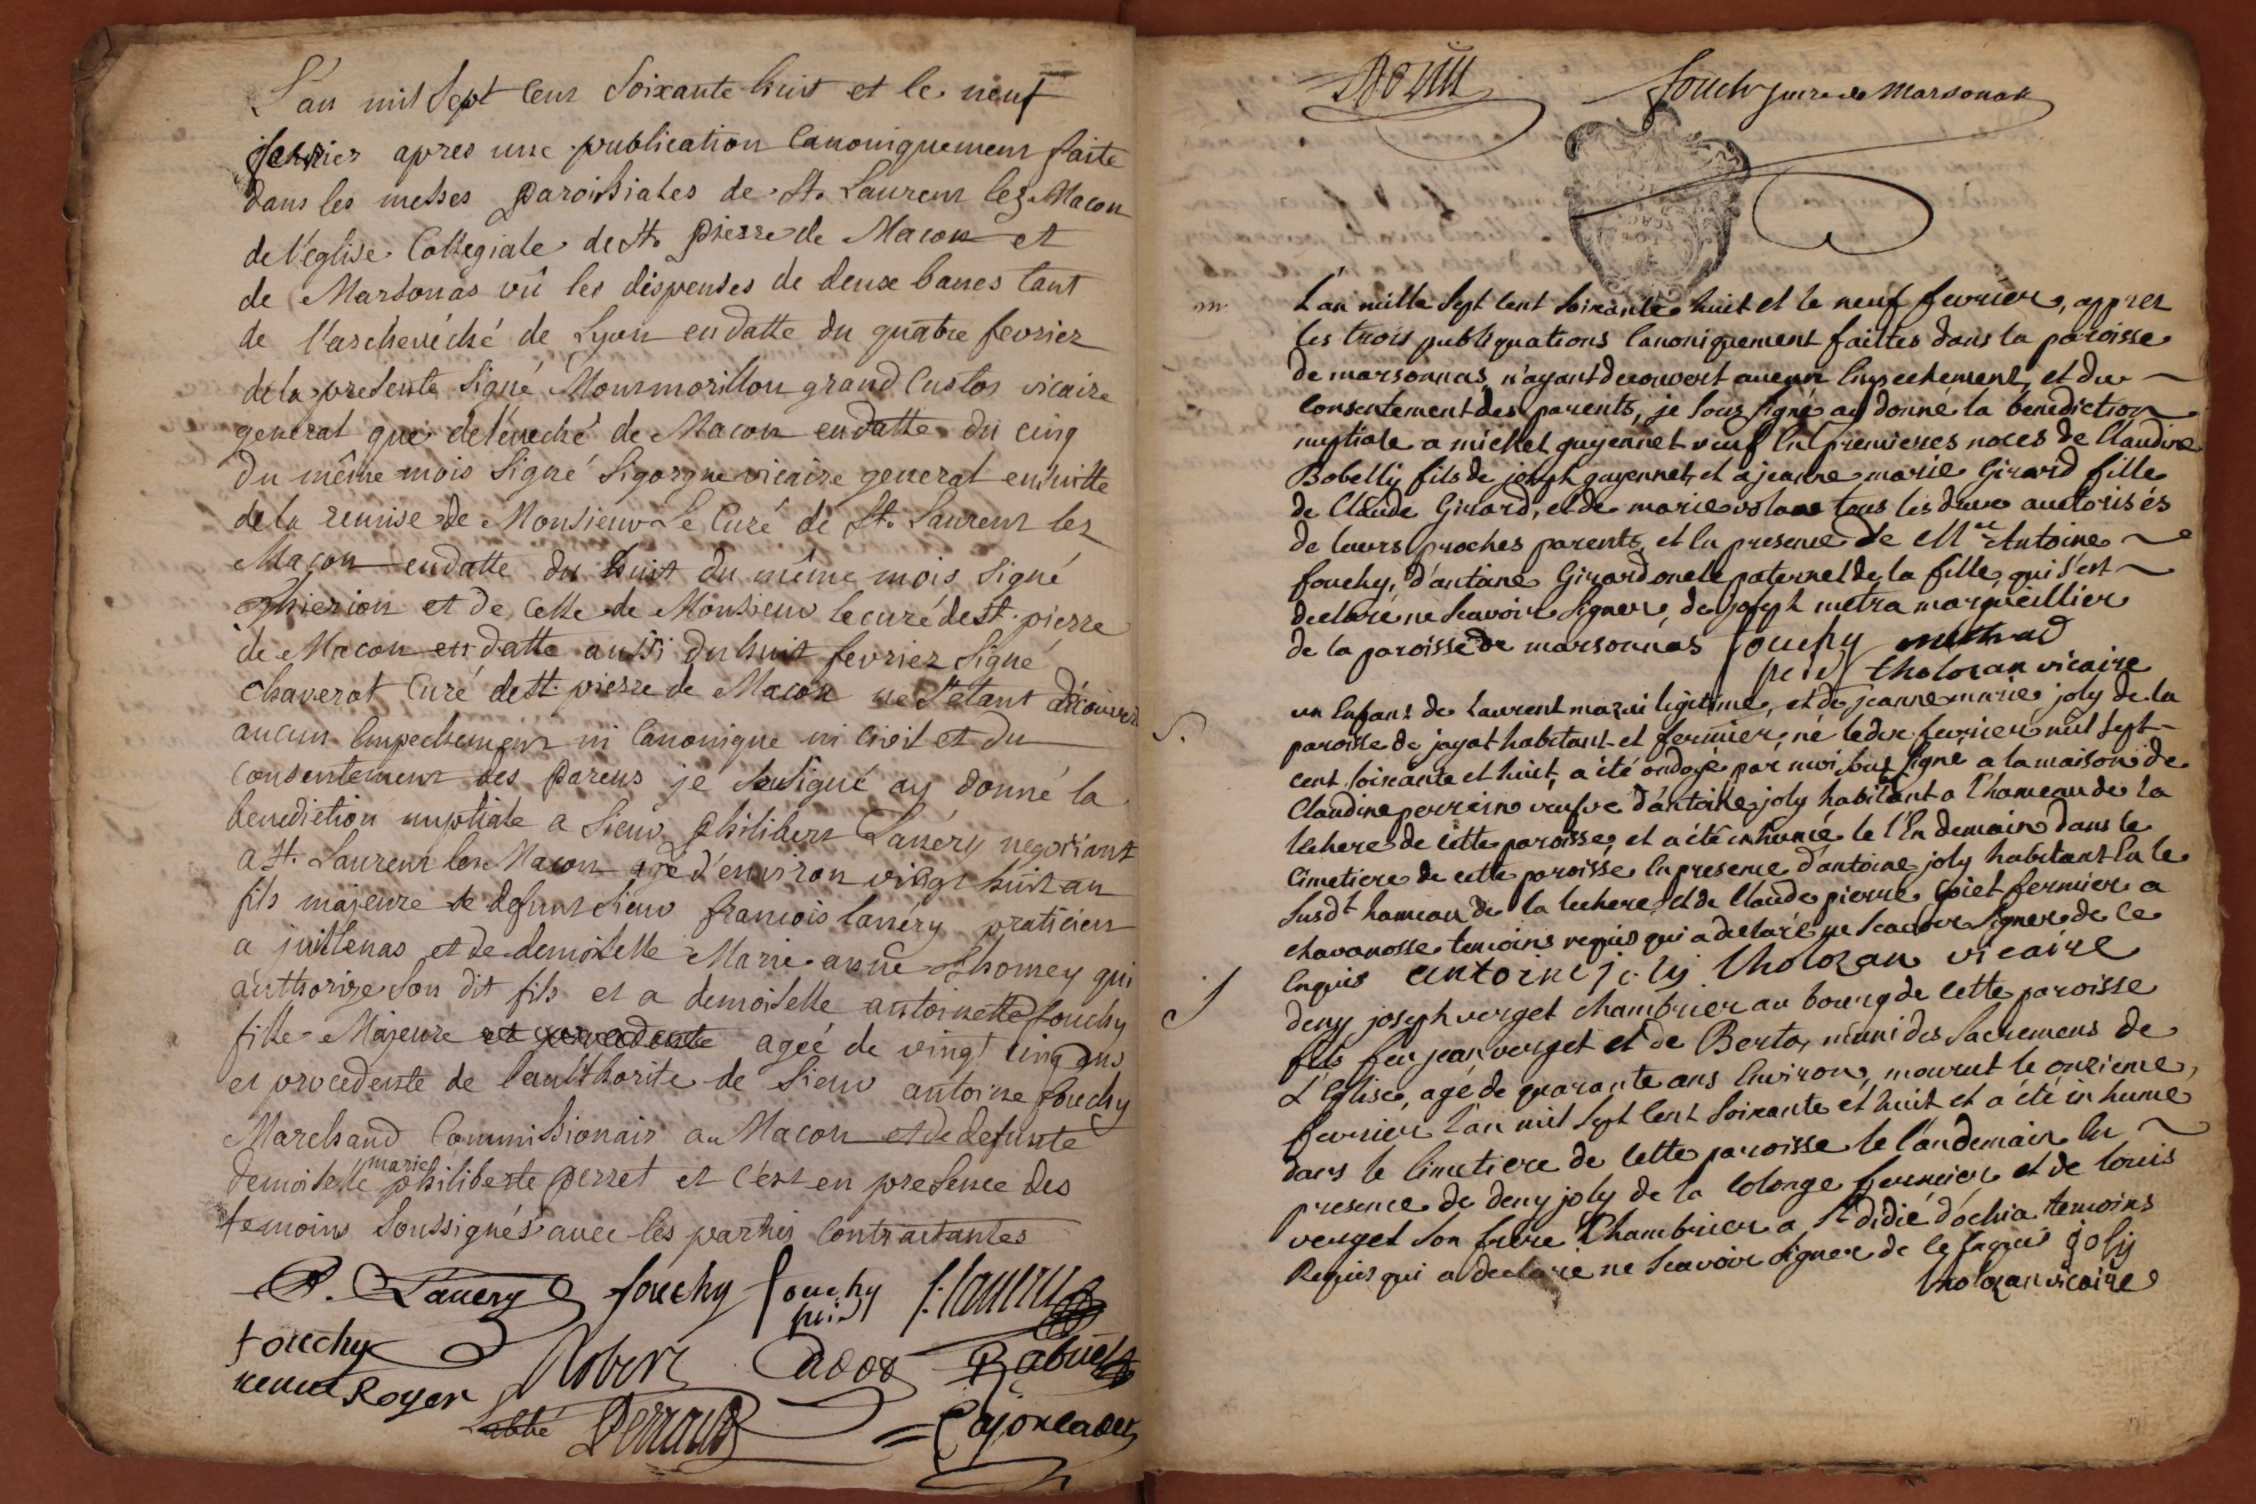 L'an mil Sept Cens Soixante huit et le neuf
fevrier apres une publication Canoniquement faite
dans les messes paroissiales de St. Laurens lez Macon
de l'eglise Collegiale de St. pierre de Macon et
de Marsonas vû les dispenses de deux bancs tant
de l'archevéché de Lyon en datte du quatre fevrier
de la presente Signé Monmorillon grand Custos vicaire
general que de l'éveché de Macon en datte du cinq
du même mois Signé Sigorgne vicaire general en suitte
de la remise de Monsieur Le Curé de St. Laurens lez
Macon en datte du huit du même mois Signé
et de Celle de Monsieur le curé de St. pierre
de Macon en datte aussi du huit fevrier Signé
Chaverot Curé de St. pierre de Macon ne S'etant découvert
aucun Empechement ni Canonique ni Civil et du
Consentement des parens je Sousigné ay donné la
benediction nuptiale a Sieur philibert Lanéry negotiant
a St. Laurens les Macon agé d'environ vingt huit an
fils majeure de defunt Sieur francois lanéry praticien
a jullenas et de demoiselle Marie anne Thomey qui
authorize Son dit fils et a demoiselle antoinette fouchy
fille Majeure et procedente agée de vingt cinq ans
et procedente de l'aulthorite de Sieur antoine fouchy
Marchand Commissionair au Macon et de defunte
demoiselle marie philiberte perret et c'est en presence des
temoins Soussignés avec les parties Contractantes
P. Lanery fouchy fouchy f. lanery
fouchy Robert Cador Rabuel
Royer
Labbé Perraud Cajon cadet
fouchy cure de Marsonak
L'an mille Sept Cent Soixante huit et le neuf fevrier, appres
les trois publiquations Canoniquement faittes dans la paroisse
de marsonnas n'ayant decouvert aucun Empechement, et du
Consentement des parents, je Sous Signé ay donné la benediction
nuptiale a michel guyennet veuf En premieres noces de Claudine
Bobelly fils de joseph guyennet, et a jeanne marie Girard fille
de Claude Girard, et de marie volans tous les deux auctorisés
de leurs proches parents, et En presence de Mre Antoine
fouchy, d'antoine Girard oncle paternel de la fille, qui s'est
declaré ne Scavoir Signer, de joseph metra marguillier
de la paroisse de marsonnas fouchy metrad
tholozan vicaire
un Enfant de Laurent mazui legitime, et de jeanne marie joly de la
paroisse de jayat habitant et fermier, né le dix fevrier mil Sept
cent Soixante et huit, a été ondoyé par moi Sous Signé a la maison de
Claudine perrein veufve d'antoine joly habitant a l'hameau de la
lechere de cette paroisse, et a été inhumé le l'En demain dans le
Cimetiere de cette paroisse En presence d'antoine joly habitant En le
Susdt hameau de la lechere, et de Claude pierre fermier a
chavanosse temoins requis qui a declaré ne Scavoir Signer de Ce
Enquis antoine joly tholozan vicaire
deny joseph verget chambrier au bourg de Cette paroisse
fils feu jean verget et de Berta, muni des Sacremens de
L'Eglise, agé de quarante ans Environ, mourut le onzieme
fevrier l'an mil Sept Cent Soixante et huit et a été inhumé
dans le Cimetiere de Cette paroisse le l'andemain En
presence de deny joly de la Colonge fermier, et de louis
verget Son frere Chambrier a St didié d'ochia temoins
Requis qui a declaré ne Scavoir Signer de Ce Enquis joly
tholozan vicaire